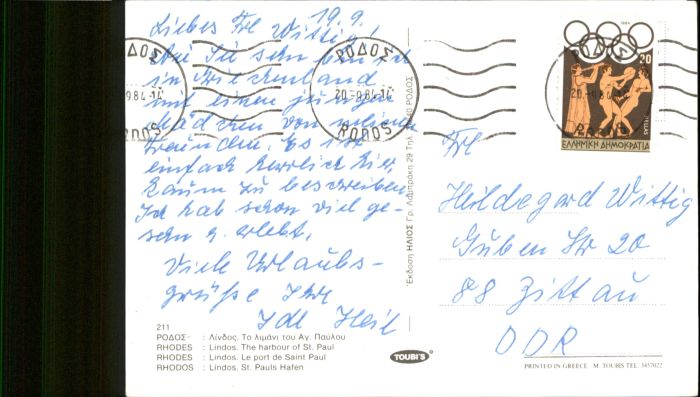 19.9.
Liebes Frl Wittig!
Wie Sie sehn bin ich
in Griechenland
mit einem jungen
Mädchen von meinen
Freunden. Es ist
einfach herrlich hier,
kaum zu beschreiben
Ich hab schon viel ge-
sehn u. erlebt.
Viele Urlaubs-
grüße Ihre
Heil
ΡΟΔΟΣ
20.-9.84.14
RODOS
1984
20
HELLAS
ΕΛΛΗΝΙΚΗ ΔΗΜΟΚΡΑΤΙΑ
Έκδοση ΗΛΙΟΣ Γρ. Λαμπράκη 29 Τηλ. ΡΟΔΟΣ
Frl
Hildegard Wittig
Guben Str 20
88 Zittau
DDR
211
ΡΟΔΟΣ : Λίνδος. Το λιμάνι του Αγ. Παύλου
RHODES : Lindos. The harbour of St. Paul
RHODES : Lindos. Le port de Saint Paul
RHODOS : Lindos. St. Pauls Hafen
TOUBI'S
PRINTED IN GREECE M. TOUBIS TEL. 3457022